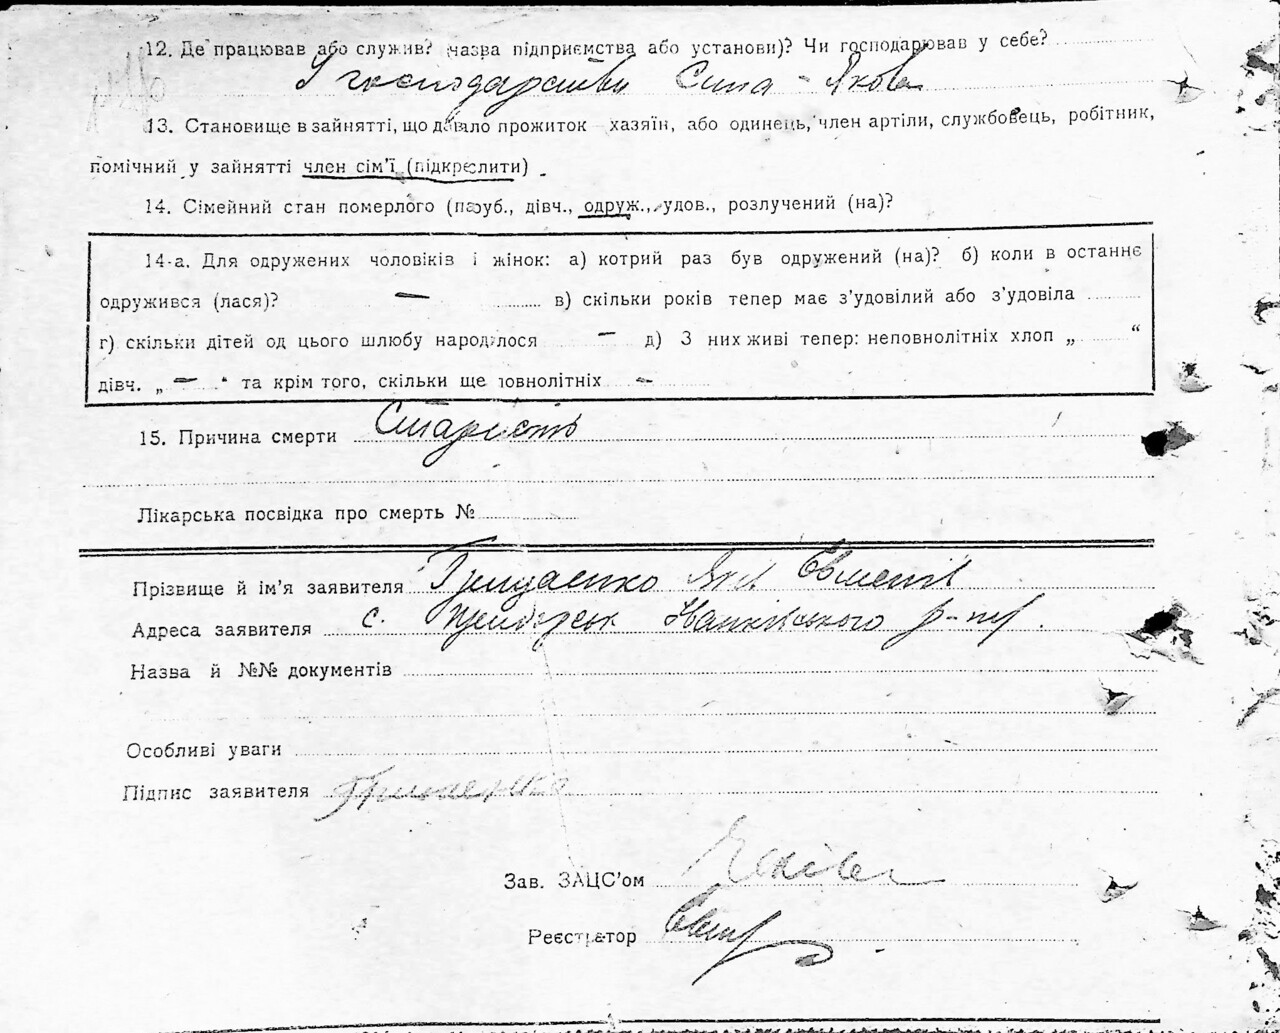 12. Де працював або служив? (назва підприємства або установи)? Чи господарював у себе?
У господарстві Сина - Якова
13. Становище в зайнятті, що давало прожиток хазяїн, або одинець, член артіли, службовець, робітник,
помічний у зайнятті член сім'ї (підкреслити)
14. Сімейний стан померлого (паруб., дівч., одруж., удов., розлучений (на)?
14-а. Для одружених чоловіків і жінок: а) котрий раз був одружений (на)? б) коли в останнє
одружився (лася)? — в) скільки років тепер має з'удовілий або з'удовіла
г) скільки дітей од цього шлюбу народилося — д) З них живі тепер: неповнолітніх хлоп „ “
дівч. „ — “ та крім того, скільки ще повнолітніх —
15. Причина смерти Старість
Лікарська посвідка про смерть №
Прізвище й ім'я заявителя Грищенко Яків
Адреса заявителя с. р-ну.
Назва й №№ документів
Особливі уваги
Підпис заявителя Грищенко
Зав. ЗАЦС'ом
Реєстратор